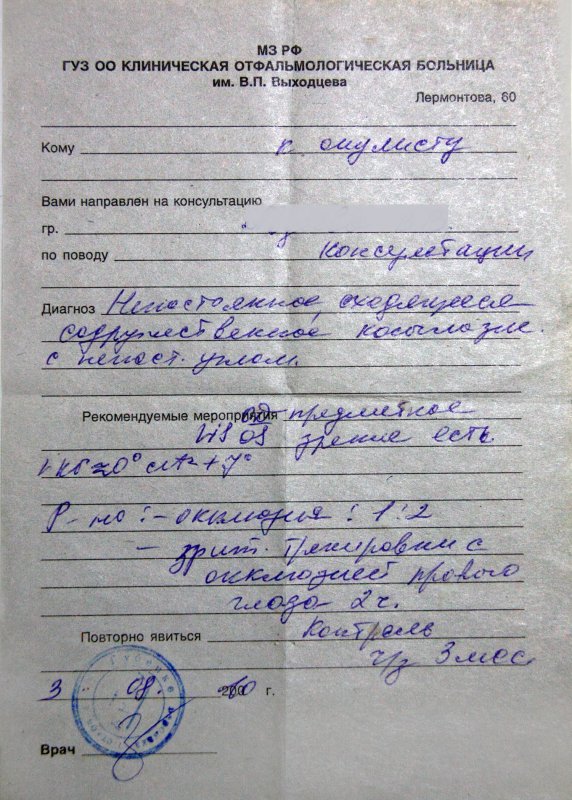 МЗ РФ
ГУЗ ОО КЛИНИЧЕСКАЯ ОТФАЛЬМОЛОГИЧЕСКАЯ БОЛЬНИЦА
им. В.П. Выходцева
Лермонтова, 60
Кому к окулисту
Вами направлен на консультацию
гр.
по поводу консультации
Диагноз Непостоянное сходящееся
содружественное косоглазие
с непост. углом.
Рекомендуемые мероприятия OD предметное
Vis OS зрение есть
Р-но: - окклюзия 1:2
- зрит. тренировки с
окклюзией правого
глаза 2 ч.
Повторно явиться Контроль
ч/з 3 мес.
3 08. 2010 г.
Врач